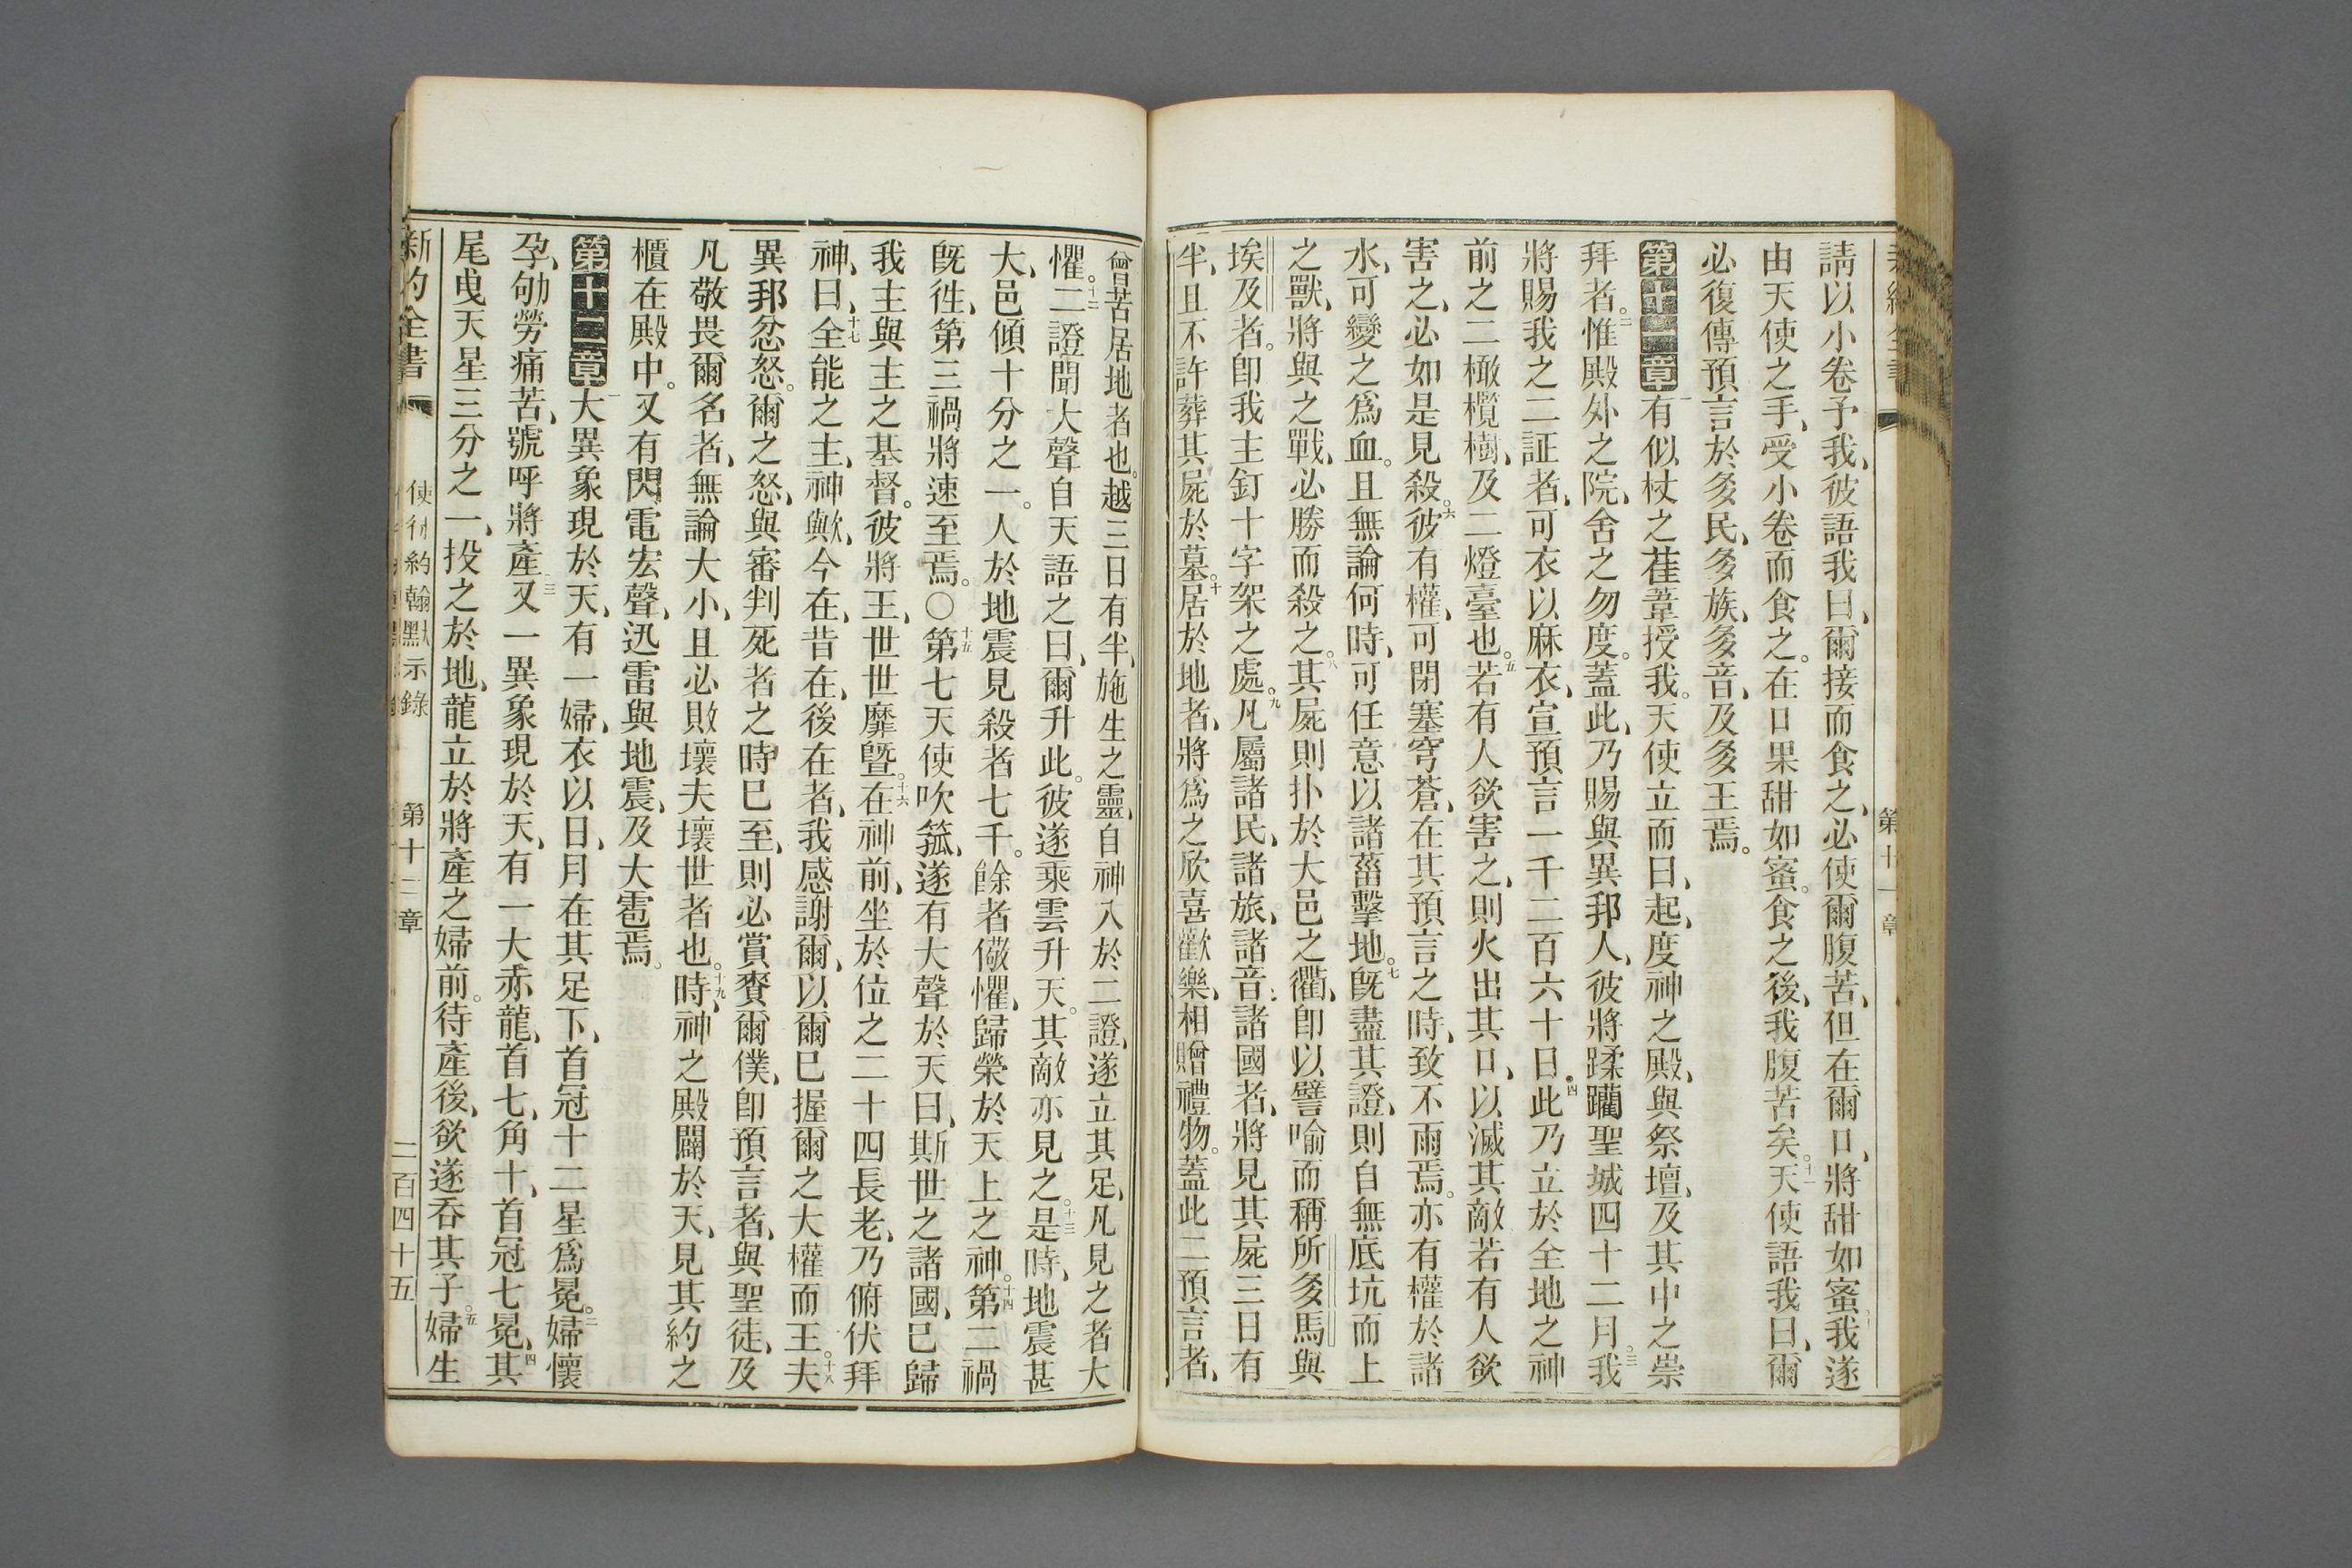 新約全書
第十一章
請以小卷予我、彼語我曰、爾接而食之、必使爾腹苦、但在爾口、將甜如蜜、十我遂
由天使之手、受小卷而食之。在口果甜如蜜。食之後、我腹苦矣。十一天使語我曰、爾
必復傳預言於多民、多族、多音、及多王焉。
第十一章一有似杖之萑葦授我。天使立而曰、起、度神之殿、與祭壇、及其中之崇
拜者。二惟殿外之院、舍之勿度。蓋此乃賜與異邦人、彼將蹂躪聖城四十二月。三我
將賜我之二証者、可衣以麻衣、宣預言一千二百六十日。四此乃立於全地之神
前之二橄欖樹、及二燈臺也。五若有人欲害之、則火出其口、以滅其敵若有人欲
害之、必如是見殺。六彼有權、可閉塞穹蒼、在其預言之時、致不雨焉。亦有權於諸
水、可變之爲血。且無論何時、可任意以諸菑擊地。七旣盡其證、則自無底坑而上
之獸、將與之戰、必勝而殺之。八其屍則扑於大邑之衢、卽以譬喻而稱所多馬與
埃及者。卽我主釘十字架之處。九凡屬諸民、諸旅、諸音、諸國者、將見其屍三日有
半、且不許葬其屍於墓。十居於地者、將爲之欣喜歡樂、相贈禮物。蓋此二預言者、
曾苦居地者也。越三日有半、施生之靈、自神入於二證、遂立其足、凡見之者大
懼。十二二證聞大聲自天語之曰、爾升此。彼遂乘雲升天。其敵亦見之。十三是時、地震甚
大、邑傾十分之一。人於地震見殺者七千。餘者儆懼、歸榮於天上之神。十四第二禍
旣徃、第三禍將速至焉。〇十五第七天使吹箛、遂有大聲於天曰、斯世之諸國、已歸
我主與主之基督。彼將王、世世靡曁。十六在神前、坐於位之二十四長老、乃俯伏拜
神、曰、十七全能之主、神歟、今在、昔在、後在者、我感謝爾、以爾已握爾之大權而王。十八夫
異邦忿怒。爾之怒、與審判死者之時已至、則必賞賚爾僕、卽預言者、與聖徒、及
凡敬畏爾名者、無論大小、且必敗壞夫壞世者也。十九時、神之殿闢於天、見其約之
櫃在殿中。又有閃電宏聲、迅雷與地震、及大雹焉。
第十二章一大異象現於天、有一婦、衣以日、月在其足下、首冠十二星爲冕。二婦懷
孕、劬勞痛苦、號呼將產三又一異象現於天、有一大赤龍、首七、角十、首冠七冕、四其
尾曳天星三分之一、投之於地、龍立於將產之婦前。待產後、欲遂吞其子。五婦生
新約全書
使徒約翰默示錄
第十二章
二百四十五